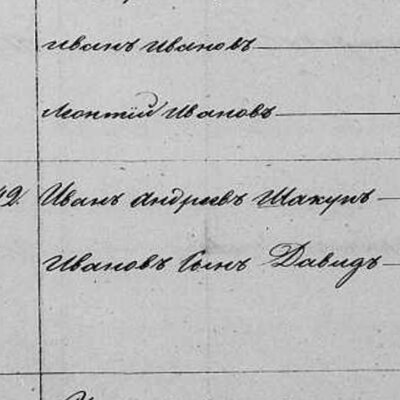 Иванъ Ивановъ
Леонтій Ивановъ
Иванъ Андреевъ Шакунъ
Ивановъ Сынъ Давидъ